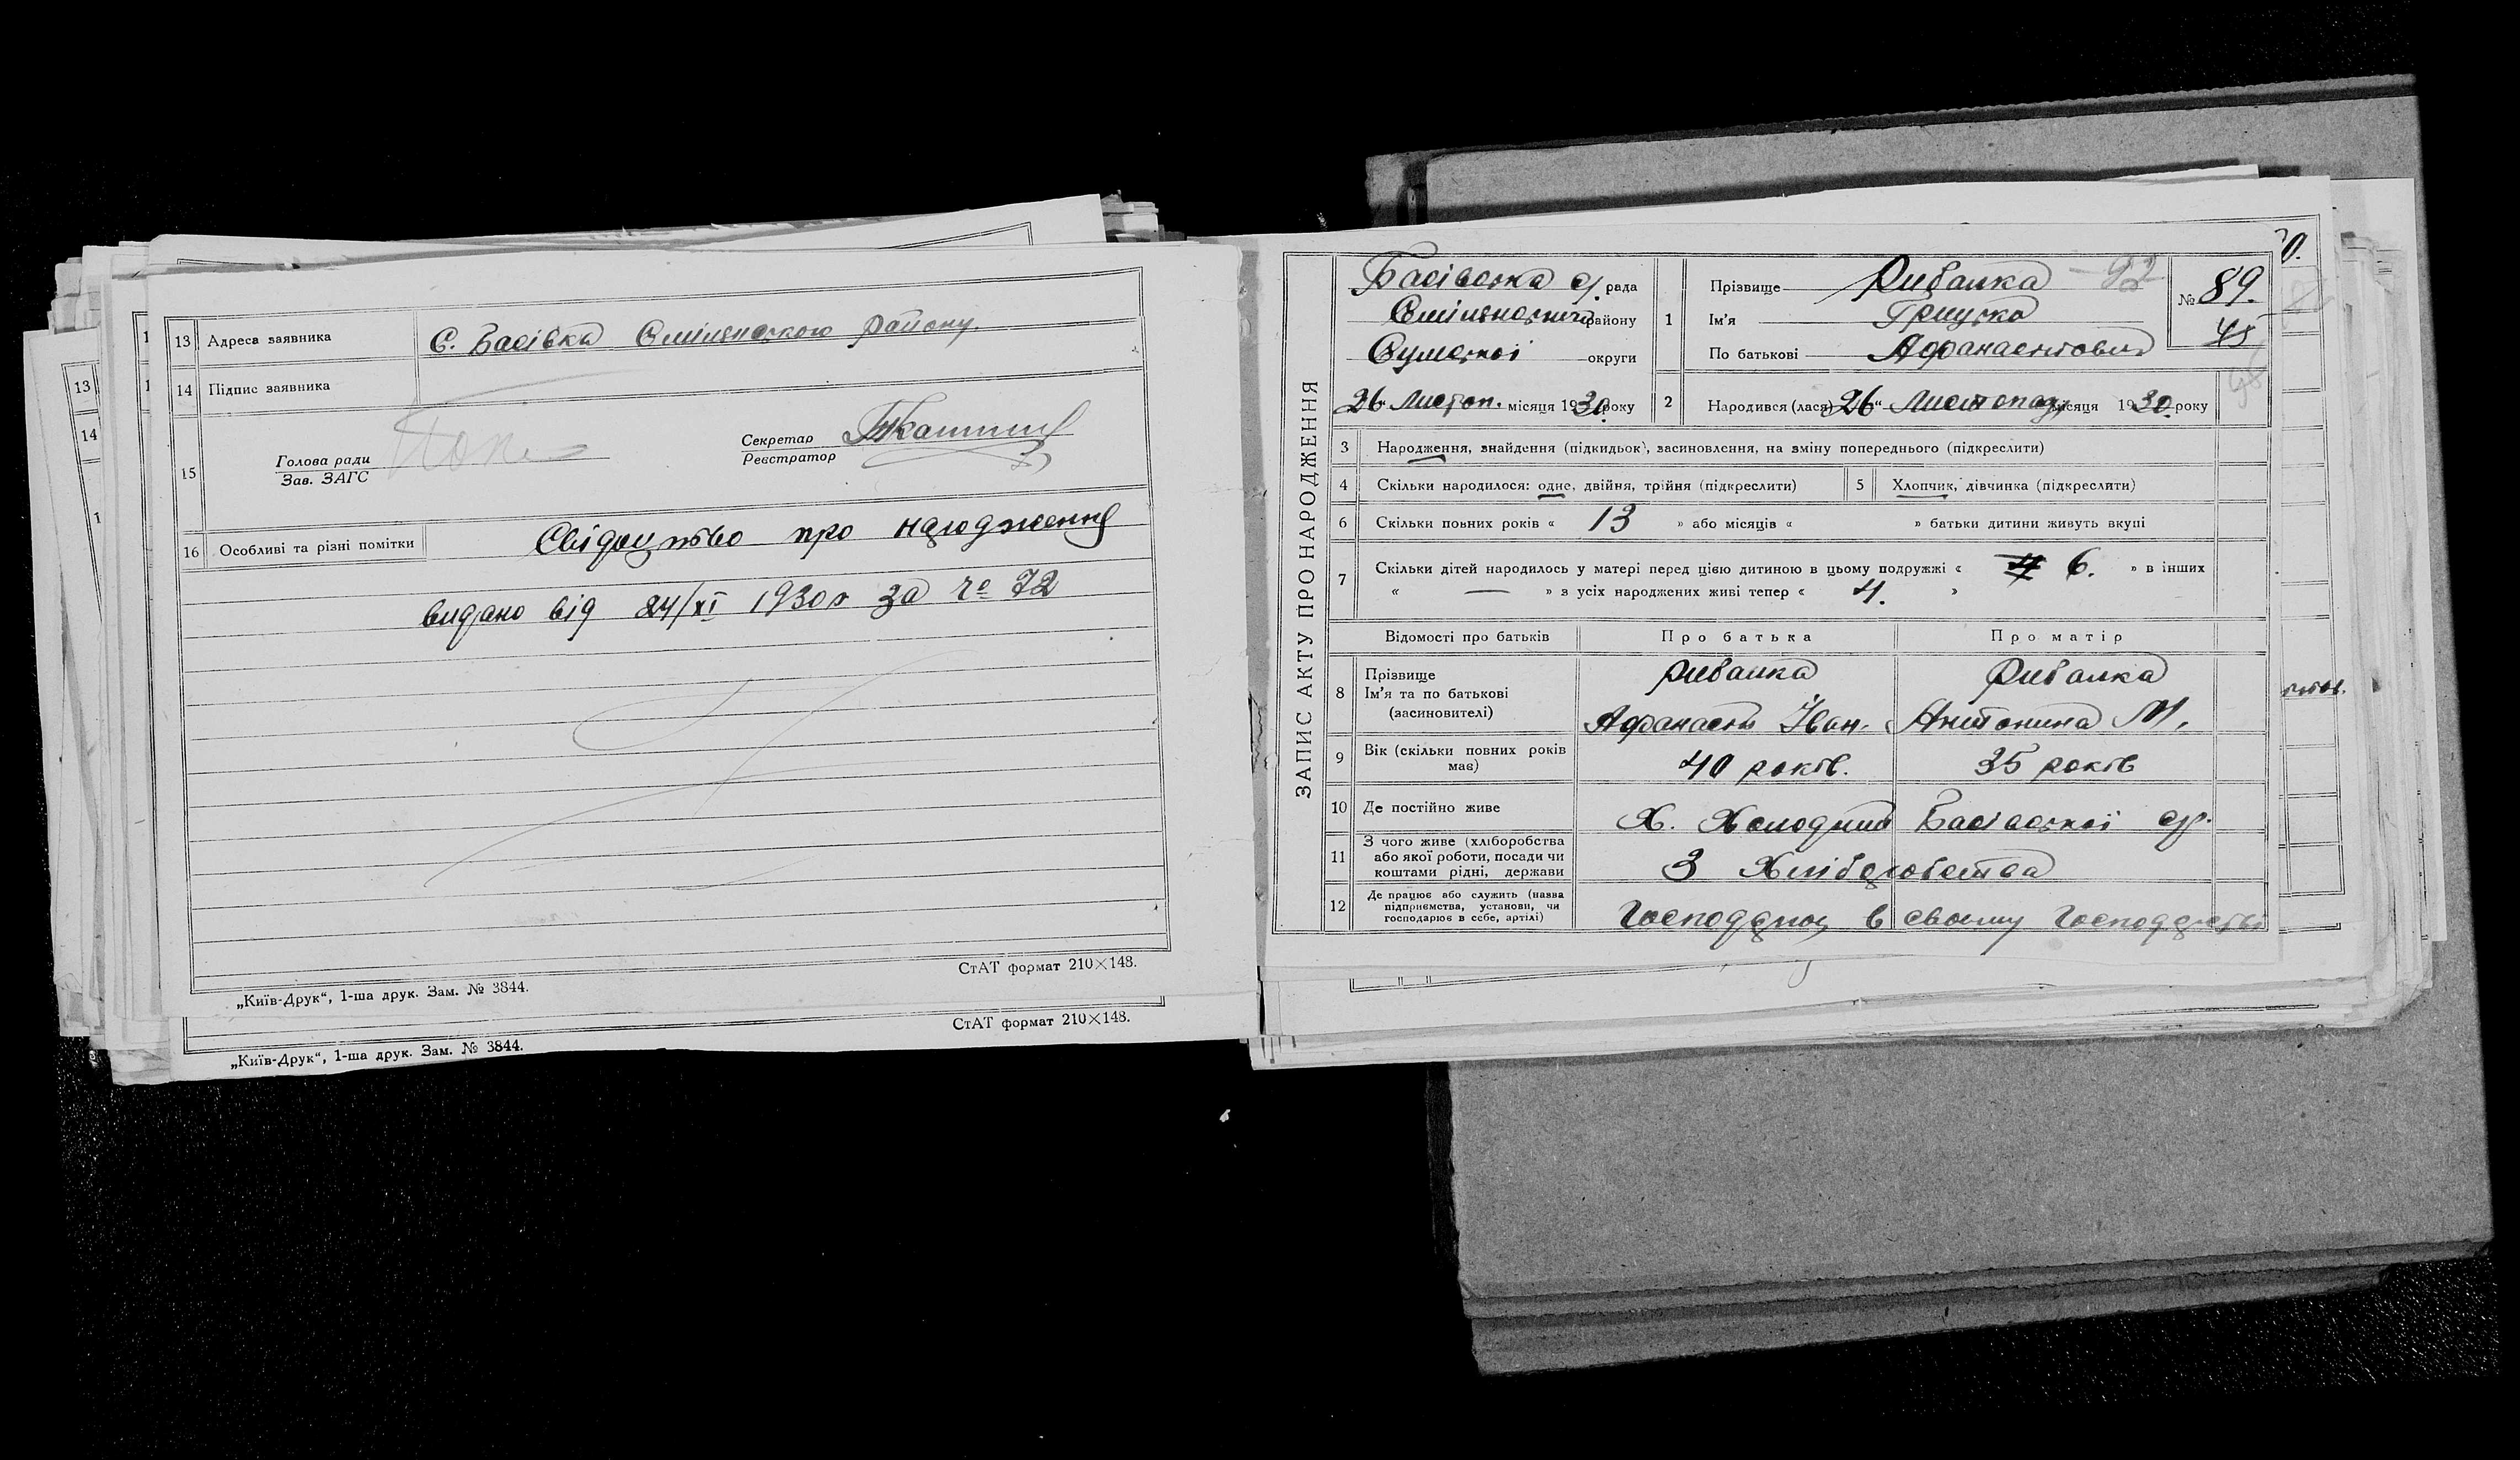 13 Адреса заявника С. Басівка Смілянського району.
14 Підпис заявника
15 Голова ради
Зав. ЗАГС
Секретар
Реєстратор
16 Особливі та різні помітки Свідоцтво про народження
видано від 24/XI 1930 р за № 72
СтАТ формат 210×148.
„Київ-Друк“, 1-ша друк. Зам. № 3844.
СтАТ формат 210×148.
„Київ-Друк“, 1-ша друк. Зам. № 3844.
13
14
ЗАПИС АКТУ ПРО НАРОДЖЕННЯ
Басівська с/. рада
району
Сумської округи
„26“ Листоп. місяця 1930. року
1 Прізвище Рибалка 92
Ім'я Грицько
По батькові Афанасійович
№ 89.
45
2 Народився (лася) „26“ Листопада місяця 1930. року
3 Народження, знайдення (підкидьок), засиновлення, на зміну попереднього (підкреслити)
4 Скільки народилося: одне, двійня, трійня (підкреслити) 5 Хлопчик, дівчинка (підкреслити)
6 Скільки повних років « 13 » або місяців « » батьки дитини живуть вкупі
7 Скільки дітей народилось у матері перед цією дитиною в цьому подружжі « 6. » в інших
« — » з усіх народжених живі тепер « 4. »
Відомості про батьків Про батька Про матір
8 Прізвище Рибалка Рибалка
Ім'я та по батькові
(засиновителі) Афанасій Іван. Антонина М.
9 Вік (скільки повних років має) 40 років. 35 років
10 Де постійно живе Х. Холодний Басівської с/р.
11 З чого живе (хліборобства
або якої роботи, посади чи
коштами рідні, держави З Хліборобства
12 Де працює або служить (назва
підприємства, установи, чи
господарює в себе, артілі) Господарює в своєму господарстві